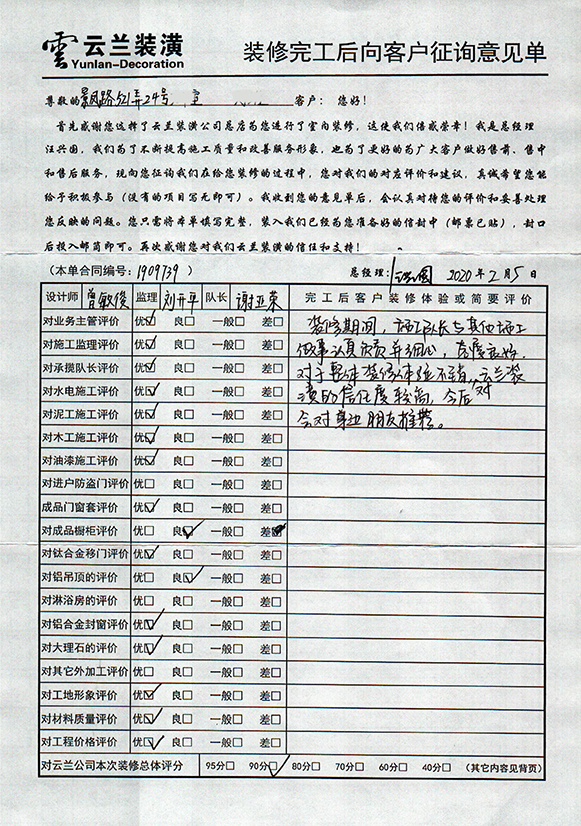 雲 云兰装潢
Yunlan-Decoration
装修完工后向客户征询意见单
尊敬的景凤路521弄24号, 室 客户： 您好！
首先感谢您选择了云兰装潢公司总店为您进行了室内装修，这使我们倍感荣幸！我是总经理
汪兴国，我们为了不断提高施工质量和改善服务形象，也为了更好的为广大客户做好售前、售中
和售后服务，现向您征询我们在给您装修的过程中，您对我们的对应评价和建议，真诚希望您能
给予积极参与（没有的项目写无即可）。我收到您的意见单后，会认真对待您的评价和妥善处理
您反映的问题。您只需将本单填写完整，装入我们已经为您准备好的信封中（邮票已贴），封口
后投入邮筒即可。再次感谢您对我们云兰装潢的信任和支持！
（本单合同编号：1909739） 总经理： 2020年2月5日
设计师 曾敏俊 监理 刘开平 队长 谢亚荣 完工后客户装修体验或简要评价
对业务主管评价 优☑ 良□ 一般□ 差□ 装修期间，施工队长与其他施工
对施工监理评价 优☑ 良□ 一般□ 差□ 做事认真负责并细心，态度良好.
对承揽队长评价 优☑ 良□ 一般□ 差□ 对于整体装修体验不错，云兰装
对水电施工评价 优☑ 良□ 一般□ 差□ 潢的信任度较高，今后对
对泥工施工评价 优☑ 良□ 一般□ 差□ 会对身边朋友推荐。
对木工施工评价 优☑ 良□ 一般□ 差□
对油漆施工评价 优☑ 良□ 一般□ 差□
对进户防盗门评价 优□ 良□ 一般□ 差□
成品门窗套评价 优☑ 良□ 一般□ 差□
对成品橱柜评价 优□ 良☑ 一般□ 差■
对钛合金移门评价 优☑ 良□ 一般□ 差□
对铝吊顶的评价 优□ 良☑ 一般□ 差□
对淋浴房的评价 优□ 良□ 一般□ 差□
对铝合金封窗评价 优☑ 良□ 一般□ 差□
对大理石的评价 优☑ 良□ 一般□ 差□
对其它外加工评价 优□ 良□ 一般□ 差□
对工地形象评价 优☑ 良□ 一般□ 差□
对材料质量评价 优☑ 良□ 一般□ 差□
对工程价格评价 优☑ 良□ 一般□ 差□
对云兰公司本次装修总体评分 95分□ 90分☑ 80分□ 70分□ 60分□ 40分□ （其它内容见背页）